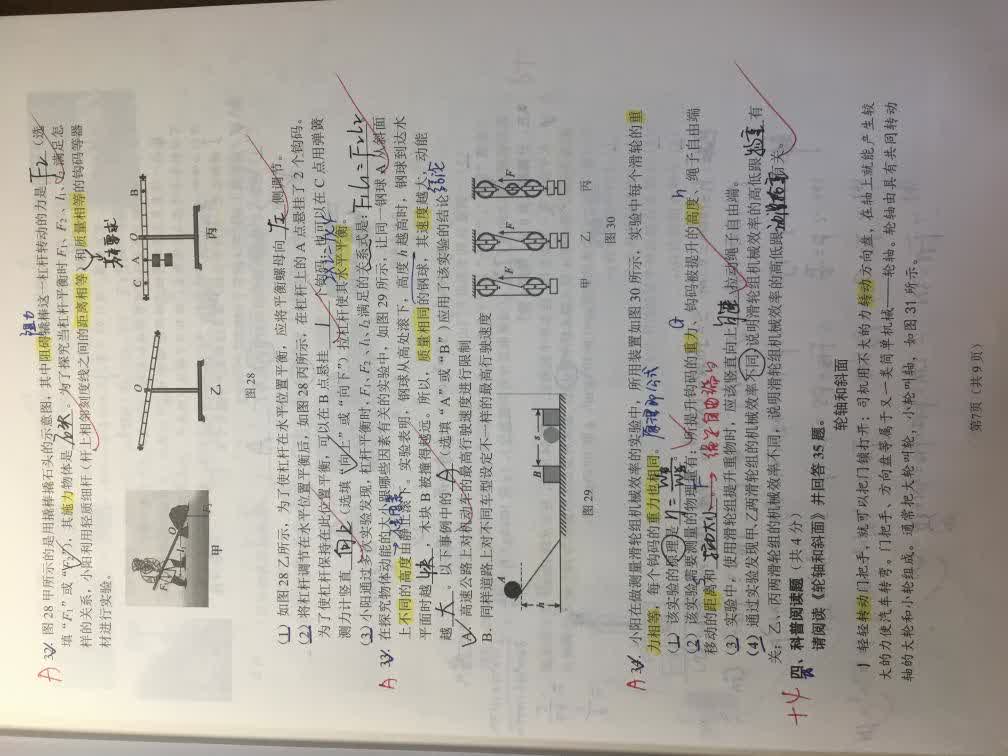 A 32. 图 28 甲所示的是用撬棒撬石头的示意图，其中阻碍撬棒这一杠杆转动的力是 F2 （选
阻力
填“F₁”或“F₂”），其施力物体是石头。为了探究当杠杆平衡时 F₁、F₂、l₁、l₂满足怎
样的关系，小阳利用轻质细杆（杆上相邻刻度线之间的距离相等）和质量相等的钩码等器
材进行实验。
甲
乙
O
C A O B
丙
图 28
(1) 如图 28 乙所示，为了使杠杆在水平位置平衡，应将平衡螺母向 左 侧调节。
(2) 将杠杆调节在水平位置平衡后，如图 28 丙所示，在杠杆上的 A 点悬挂了 2 个钩码。
为了使杠杆保持在此位置平衡，可以在 B 点悬挂 1 个钩码；也可以在 C 点用弹簧
测力计竖直 向上 （选填“向上”或“向下”）拉杠杆使其水平平衡。
(3) 小阳通过多次实验发现，杠杆平衡时，F₁、F₂、l₁、l₂满足的关系式是：F1l1=F2l2
A 33. 在探究物体动能的大小跟哪些因素有关的实验中，如图 29 所示，让同一钢球 A 从斜面
上不同的高度由静止滚下。实验表明，钢球从高处滚下，高度 h 越高时，钢球到达水
平面时越 快 ，木块 B 被撞得越远。所以，质量相同的钢球，其速度越大，动能
越 大 。以下事例中的 A （选填“A”或“B”）应用了该实验的结论
结论
A. 高速公路上对机动车的最高行驶速度进行限制
B. 同样道路上对不同车型设定不一样的最高行驶速度
A
h
B
s
图 29
F
F
F
甲
乙
丙
图 30
A 34. 小阳在做测量滑轮组机械效率的实验中，所用装置如图 30 所示，实验中每个滑轮的重
力相等，每个钩码的重力也相同。
原理即公式
(1) 该实验的原理是 η=W有/W总。
(2) 该实验需要测量的物理量有：所提升钩码的重力、钩码被提升的高度、绳子自由端
G
h
移动的距离和 拉力大小
绳子自由端的
(3) 实验中，使用滑轮组提升重物时，应该竖直向上 匀速 拉动绳子自由端。
(4) 通过实验发现甲乙两滑轮组的机械效率不同，说明滑轮组机械效率的高低跟 物重 有
关；乙、丙两滑轮组的机械效率不同，说明滑轮组机械效率的高低跟 动滑轮重 有关。
+4
四、科普阅读题（共 4 分）
请阅读《轮轴和斜面》并回答 35 题。
轮轴和斜面
轻轻转动门把手，就可以把门锁打开；司机用不大的力转动方向盘，在轴上就能产生较
大的力使汽车转弯。门把手、方向盘等属于又一类简单机械——轮轴。轮轴由具有共同转动
轴的大轮和小轮组成。通常把大轮叫轮，小轮叫轴，如图 31 所示。
第7页（共 9 页）